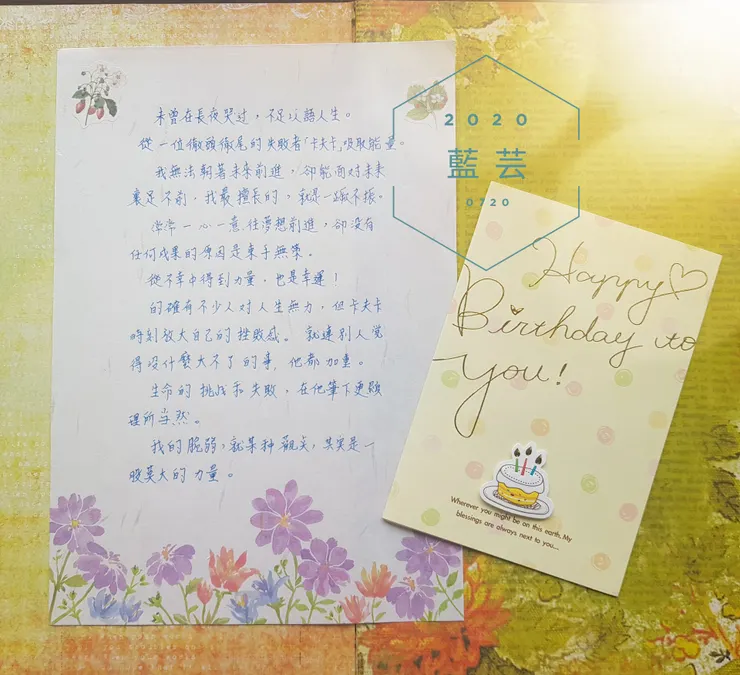 未曾在長夜哭过，不足以語人生。
從一位徹頭徹尾的失敗者「卡夫卡」吸取能量。
我無法朝著未來前進，卻能面对未來
裹足不前，我最擅長的，就是一蹶不振。
常常一心一意往夢想前進，卻没有
任何成果的原因是束手無策。
從不幸中得到力量，也是幸運！
的確有不少人对人生無力，但卡夫卡
時刻放大自己的挫敗感。就連別人覺
得没什麼大不了的事，他都加重。
生命的挑战和失敗，在他筆下更顯
理所当然。
我的脆弱，就某种觀点，其实是一
股莫大的力量。
2020
藍芸
0720
Happy
Birthday to
you!
Wherever you might be on this earth, My
blessings are always next to you...